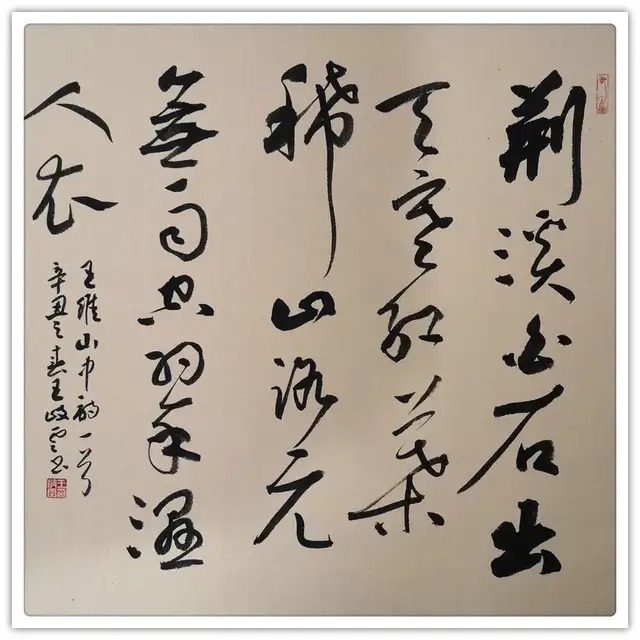 荆溪白石出
天寒红葉
稀山路元
無雨空翠湿
人衣
王维山中诗一首
辛丑之春王书